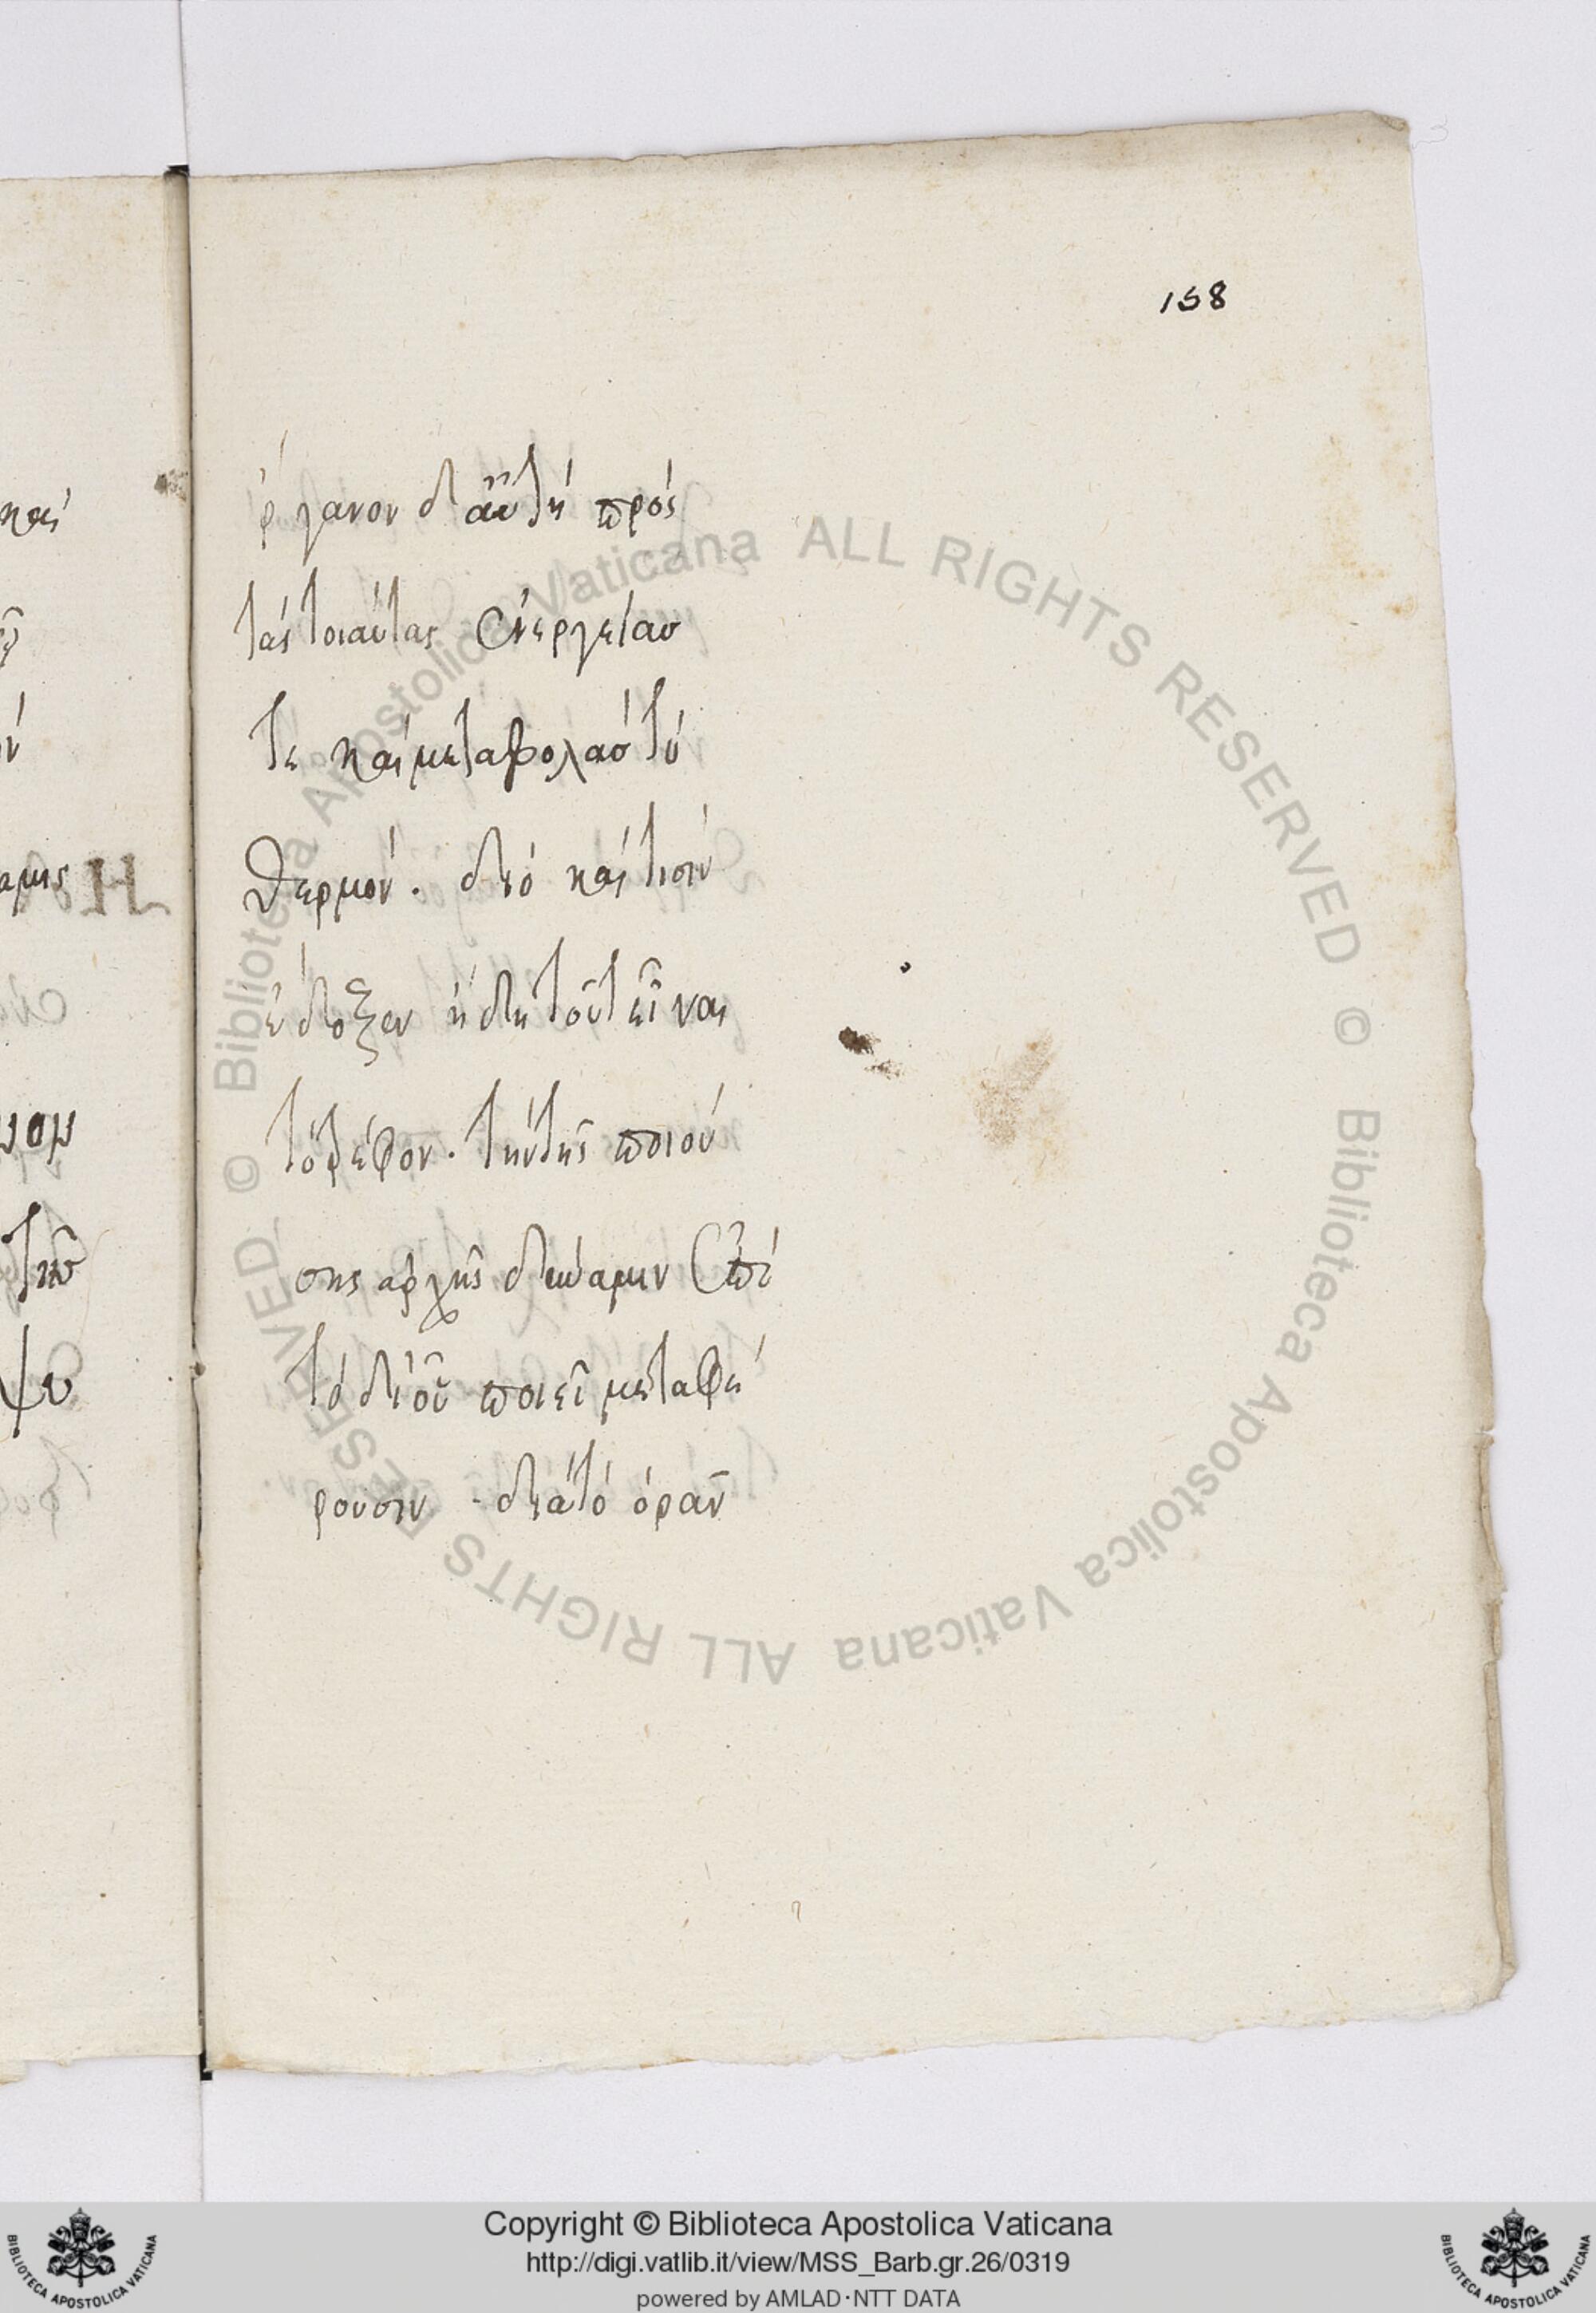 158
ρ́γανον δ' αὐτῇ πρός
τάς τοιαύτας ἐνεργείασ
τε καί μεταβολασ τό
θερμόν. διό καί τισιν
ἐδοξεν ἠδη τοῦτ εἶναι
τό τρέφον. τήν τῆς ποιού
σης αρχῆς δύναμιν ἐπί
τό δι' οὗ ποιεῖ μεταφέ
ρουσιν. διά τό ὁρᾶν
καί
© Biblioteca Apostolica Vaticana ALL RIGHTS RESERVED © Biblioteca Apostolica Vaticana ALL RIGHTS RESERVED
Copyright © Biblioteca Apostolica Vaticana
http://digi.vatlib.it/view/MSS_Barb.gr.26/0319
powered by AMLAD·NTT DATA
BIBLIOTECA APOSTOLICA VATICANA
BIBLIOTECA APOSTOLICA VATICANA